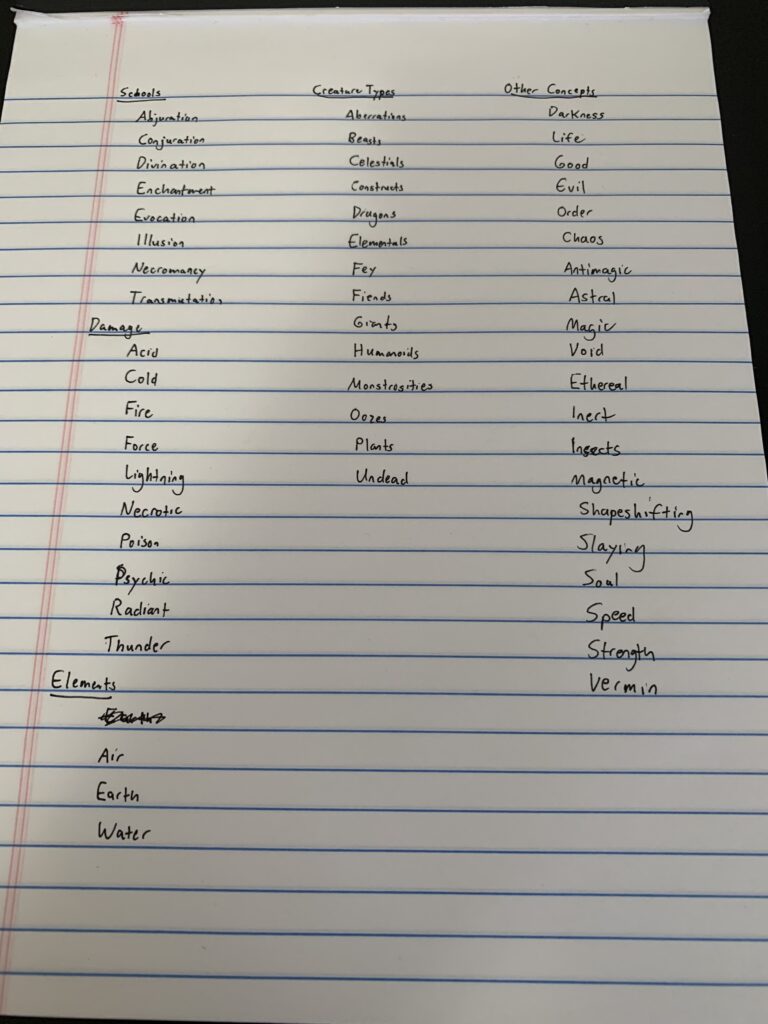 Schools
Abjuration
Conjuration
Divination
Enchantment
Evocation
Illusion
Necromancy
Transmutation
Damage
Acid
Cold
Fire
Force
Lightning
Necrotic
Poison
Psychic
Radiant
Thunder
Elements
Air
Earth
Water
Creature Types
Aberrations
Beasts
Celestials
Constructs
Dragons
Elementals
Fey
Fiends
Giants
Humanoids
Monstrosities
Oozes
Plants
Undead
Other Concepts
Darkness
Life
Good
Evil
Order
Chaos
Antimagic
Astral
Magic
Void
Ethereal
Inert
Insects
Magnetic
Shapeshifting
Slaying
Soul
Speed
Strength
Vermin